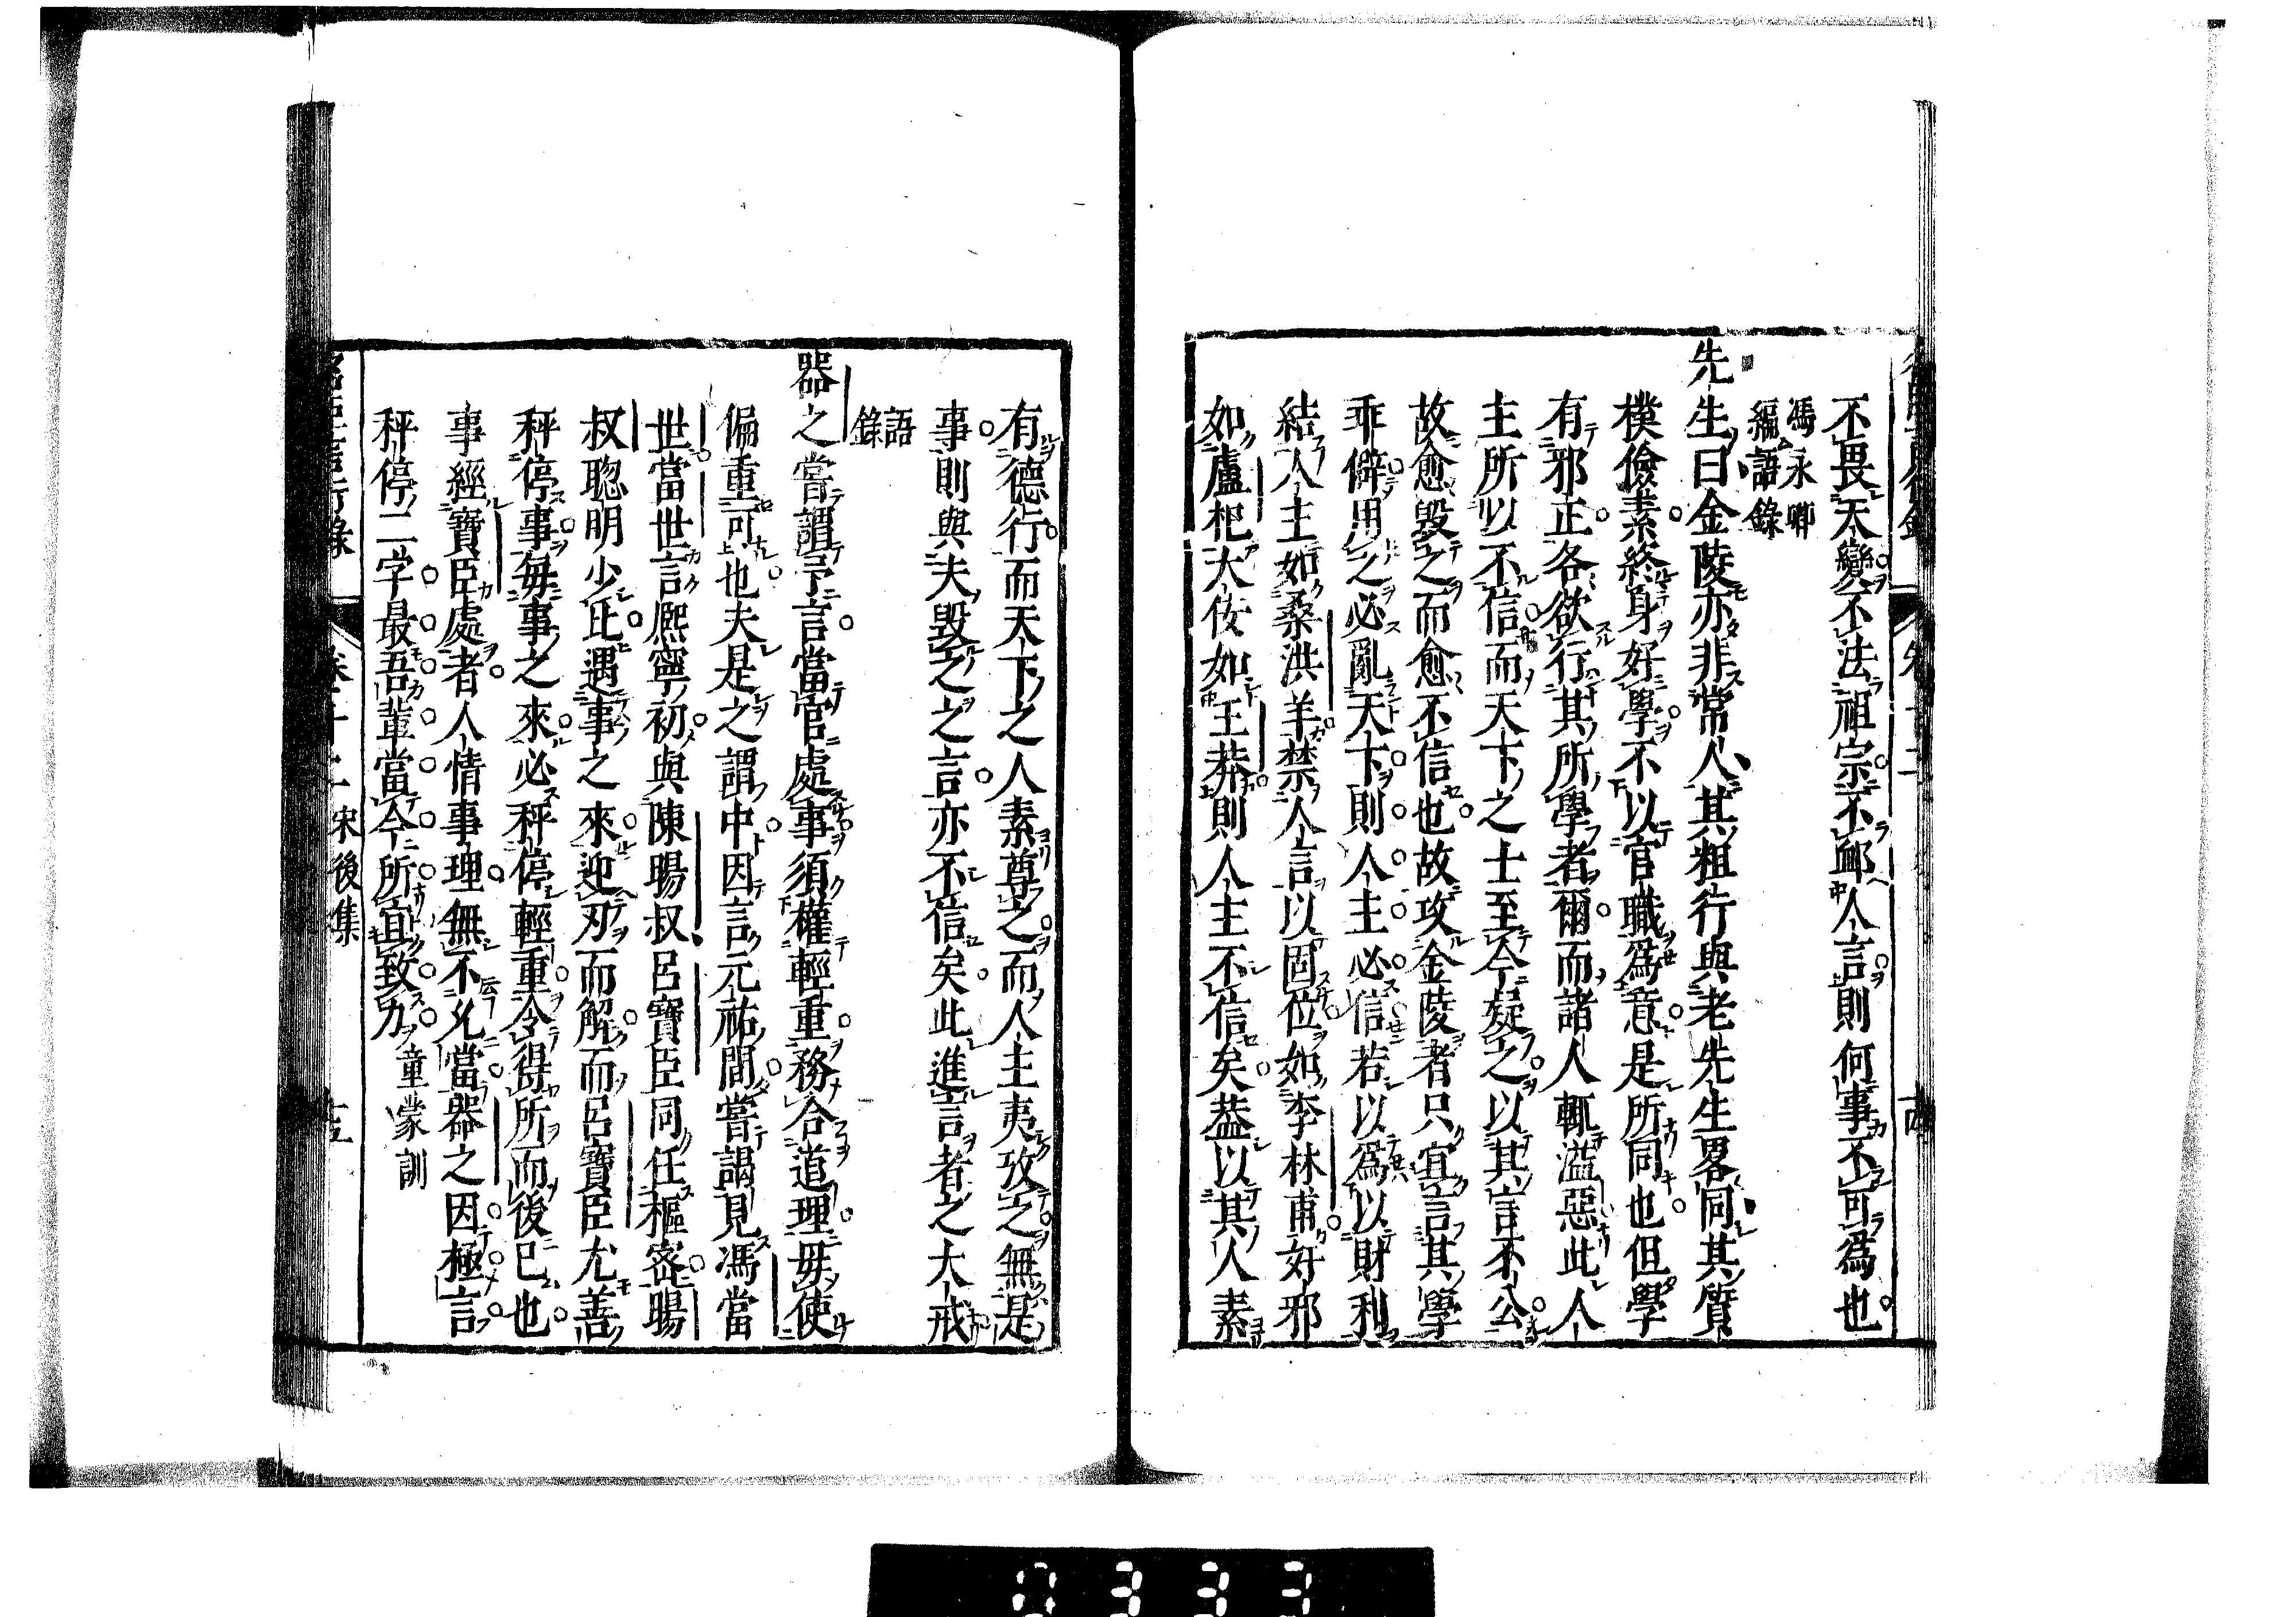 不畏天變不法祖宗不邺人言則何事不可爲也
馮永卿
編語錄
先生曰金陵亦非常人其粗行與老先生畧同其質
樸儉素終身好學不以官職爲意是所同也但學
有邪正各欲行其所學者爾而諸人輒溢惡此人
主所以不信而天下之士至今疑之以其言不公
故愈毀之而愈不信也故攻金陵者只宜言其學
乖僻用之必亂天下則人主必信若以爲以財利
結人主如桑洪羊禁人言以固位如李林甫奸邪
如盧杞大佞如王莽則人主不信矣葢以其人素
有德行而天下之人素尊之而人主夷攷之無是
事則與夫毀之之言亦不信矣此進言者之大戒
語
錄
器之嘗謂予言當官處事須權輕重務合道理毋使
偏重可也夫是之謂中因言元祐間嘗謁見馮當
世當世言熈寧初與陳暘叔呂寶臣同任樞密暘
叔聰明少比遇事之來迎刃而解而呂寶臣尤善
秤停事每事之來必秤停輕重令得所而後已也
事經寶臣處者人情事理無不允當器之因極言
秤停二字最吾輩當今所宜致力 童蒙訓
宋後集